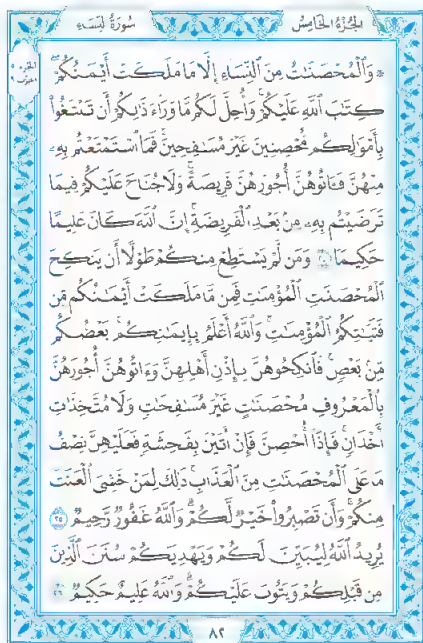 الجزء الخامس سورة النساء
الجزء ٥
الحزب ٩
۞ وَٱلْمُحْصَنَٰتُ مِنَ ٱلنِّسَآءِ إِلَّا مَا مَلَكَتْ أَيْمَٰنُكُمْ
كِتَٰبَ ٱللَّهِ عَلَيْكُمْ وَأُحِلَّ لَكُم مَّا وَرَآءَ ذَٰلِكُمْ أَن تَبْتَغُوا۟
بِأَمْوَٰلِكُم مُّحْصِنِينَ غَيْرَ مُسَٰفِحِينَ فَمَا ٱسْتَمْتَعْتُم بِهِۦ
مِنْهُنَّ فَـَٔاتُوهُنَّ أُجُورَهُنَّ فَرِيضَةً وَلَا جُنَاحَ عَلَيْكُمْ فِيمَا
تَرَٰضَيْتُم بِهِۦ مِنۢ بَعْدِ ٱلْفَرِيضَةِ إِنَّ ٱللَّهَ كَانَ عَلِيمًا
حَكِيمًا ٢٤ وَمَن لَّمْ يَسْتَطِعْ مِنكُمْ طَوْلًا أَن يَنكِحَ
ٱلْمُحْصَنَٰتِ ٱلْمُؤْمِنَٰتِ فَمِن مَّا مَلَكَتْ أَيْمَٰنُكُم مِّن
فَتَيَٰتِكُمُ ٱلْمُؤْمِنَٰتِ وَٱللَّهُ أَعْلَمُ بِإِيمَٰنِكُم بَعْضُكُم
مِّنۢ بَعْضٍ فَٱنكِحُوهُنَّ بِإِذْنِ أَهْلِهِنَّ وَءَاتُوهُنَّ أُجُورَهُنَّ
بِٱلْمَعْرُوفِ مُحْصَنَٰتٍ غَيْرَ مُسَٰفِحَٰتٍ وَلَا مُتَّخِذَٰتِ
أَخْدَانٍ فَإِذَآ أُحْصِنَّ فَإِنْ أَتَيْنَ بِفَٰحِشَةٍ فَعَلَيْهِنَّ نِصْفُ
مَا عَلَى ٱلْمُحْصَنَٰتِ مِنَ ٱلْعَذَابِ ذَٰلِكَ لِمَنْ خَشِىَ ٱلْعَنَتَ
مِنكُمْ وَأَن تَصْبِرُوا۟ خَيْرٌ لَّكُمْ وَٱللَّهُ غَفُورٌ رَّحِيمٌ ٢٥
يُرِيدُ ٱللَّهُ لِيُبَيِّنَ لَكُمْ وَيَهْدِيَكُمْ سُنَنَ ٱلَّذِينَ
مِن قَبْلِكُمْ وَيَتُوبَ عَلَيْكُمْ وَٱللَّهُ عَلِيمٌ حَكِيمٌ ٢٦
٨٢